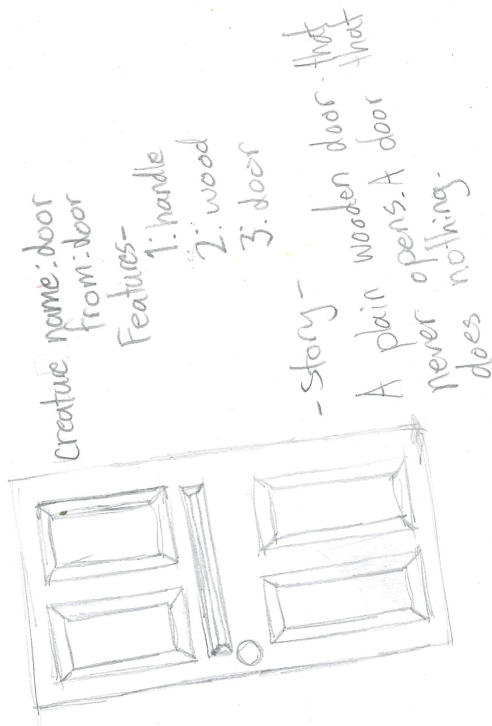 creature name: door
from: door
Features-
1: handle
2: wood
3: door
- Story -
A plain wooden door. that
never opens. A door that
does nothing.